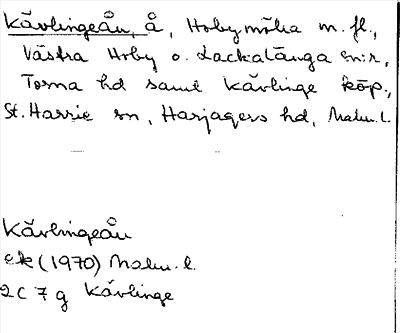 Kävlingeån, å, Hobymölla m. fl.,
Västra Hoby o. Lackalänga sn:r,
Torna hd samt Kävlinge köp.,
St. Harrie sn, Harjagers hd, Malm. l.
Kävlingeån
ek (1970) Malm. l.
2C 7g Kävlinge